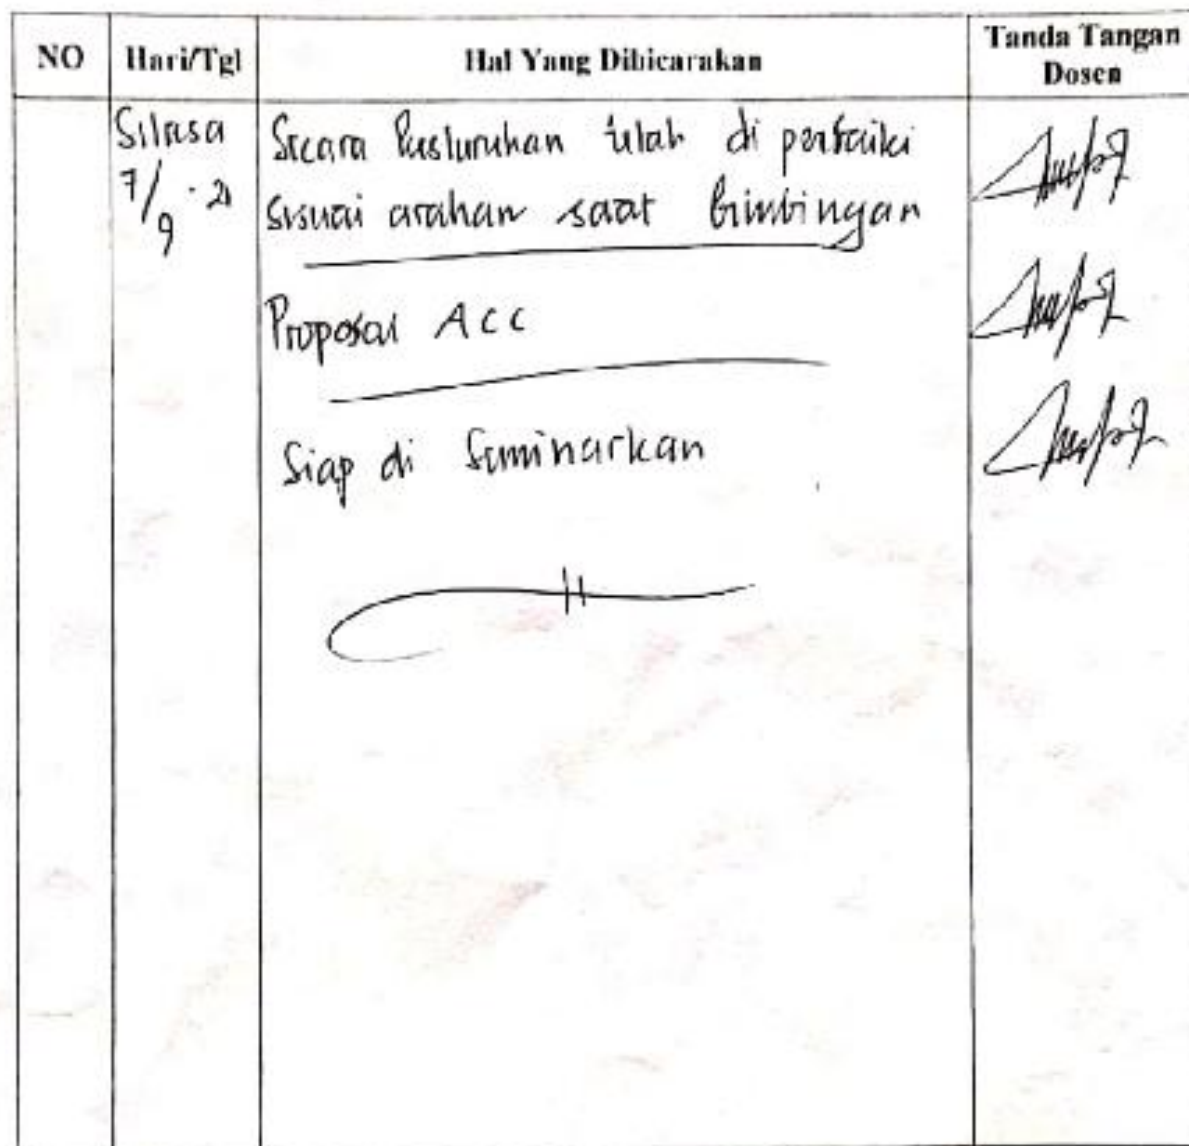 NO Hari/Tgl Hal Yang Dibicarakan Tanda Tangan
Dosen
Selasa Secara keseluruhan telah di perbaiki
7/9 - 21 sesuai arahan saat bimbingan
Proposal ACC
Siap di Seminarkan